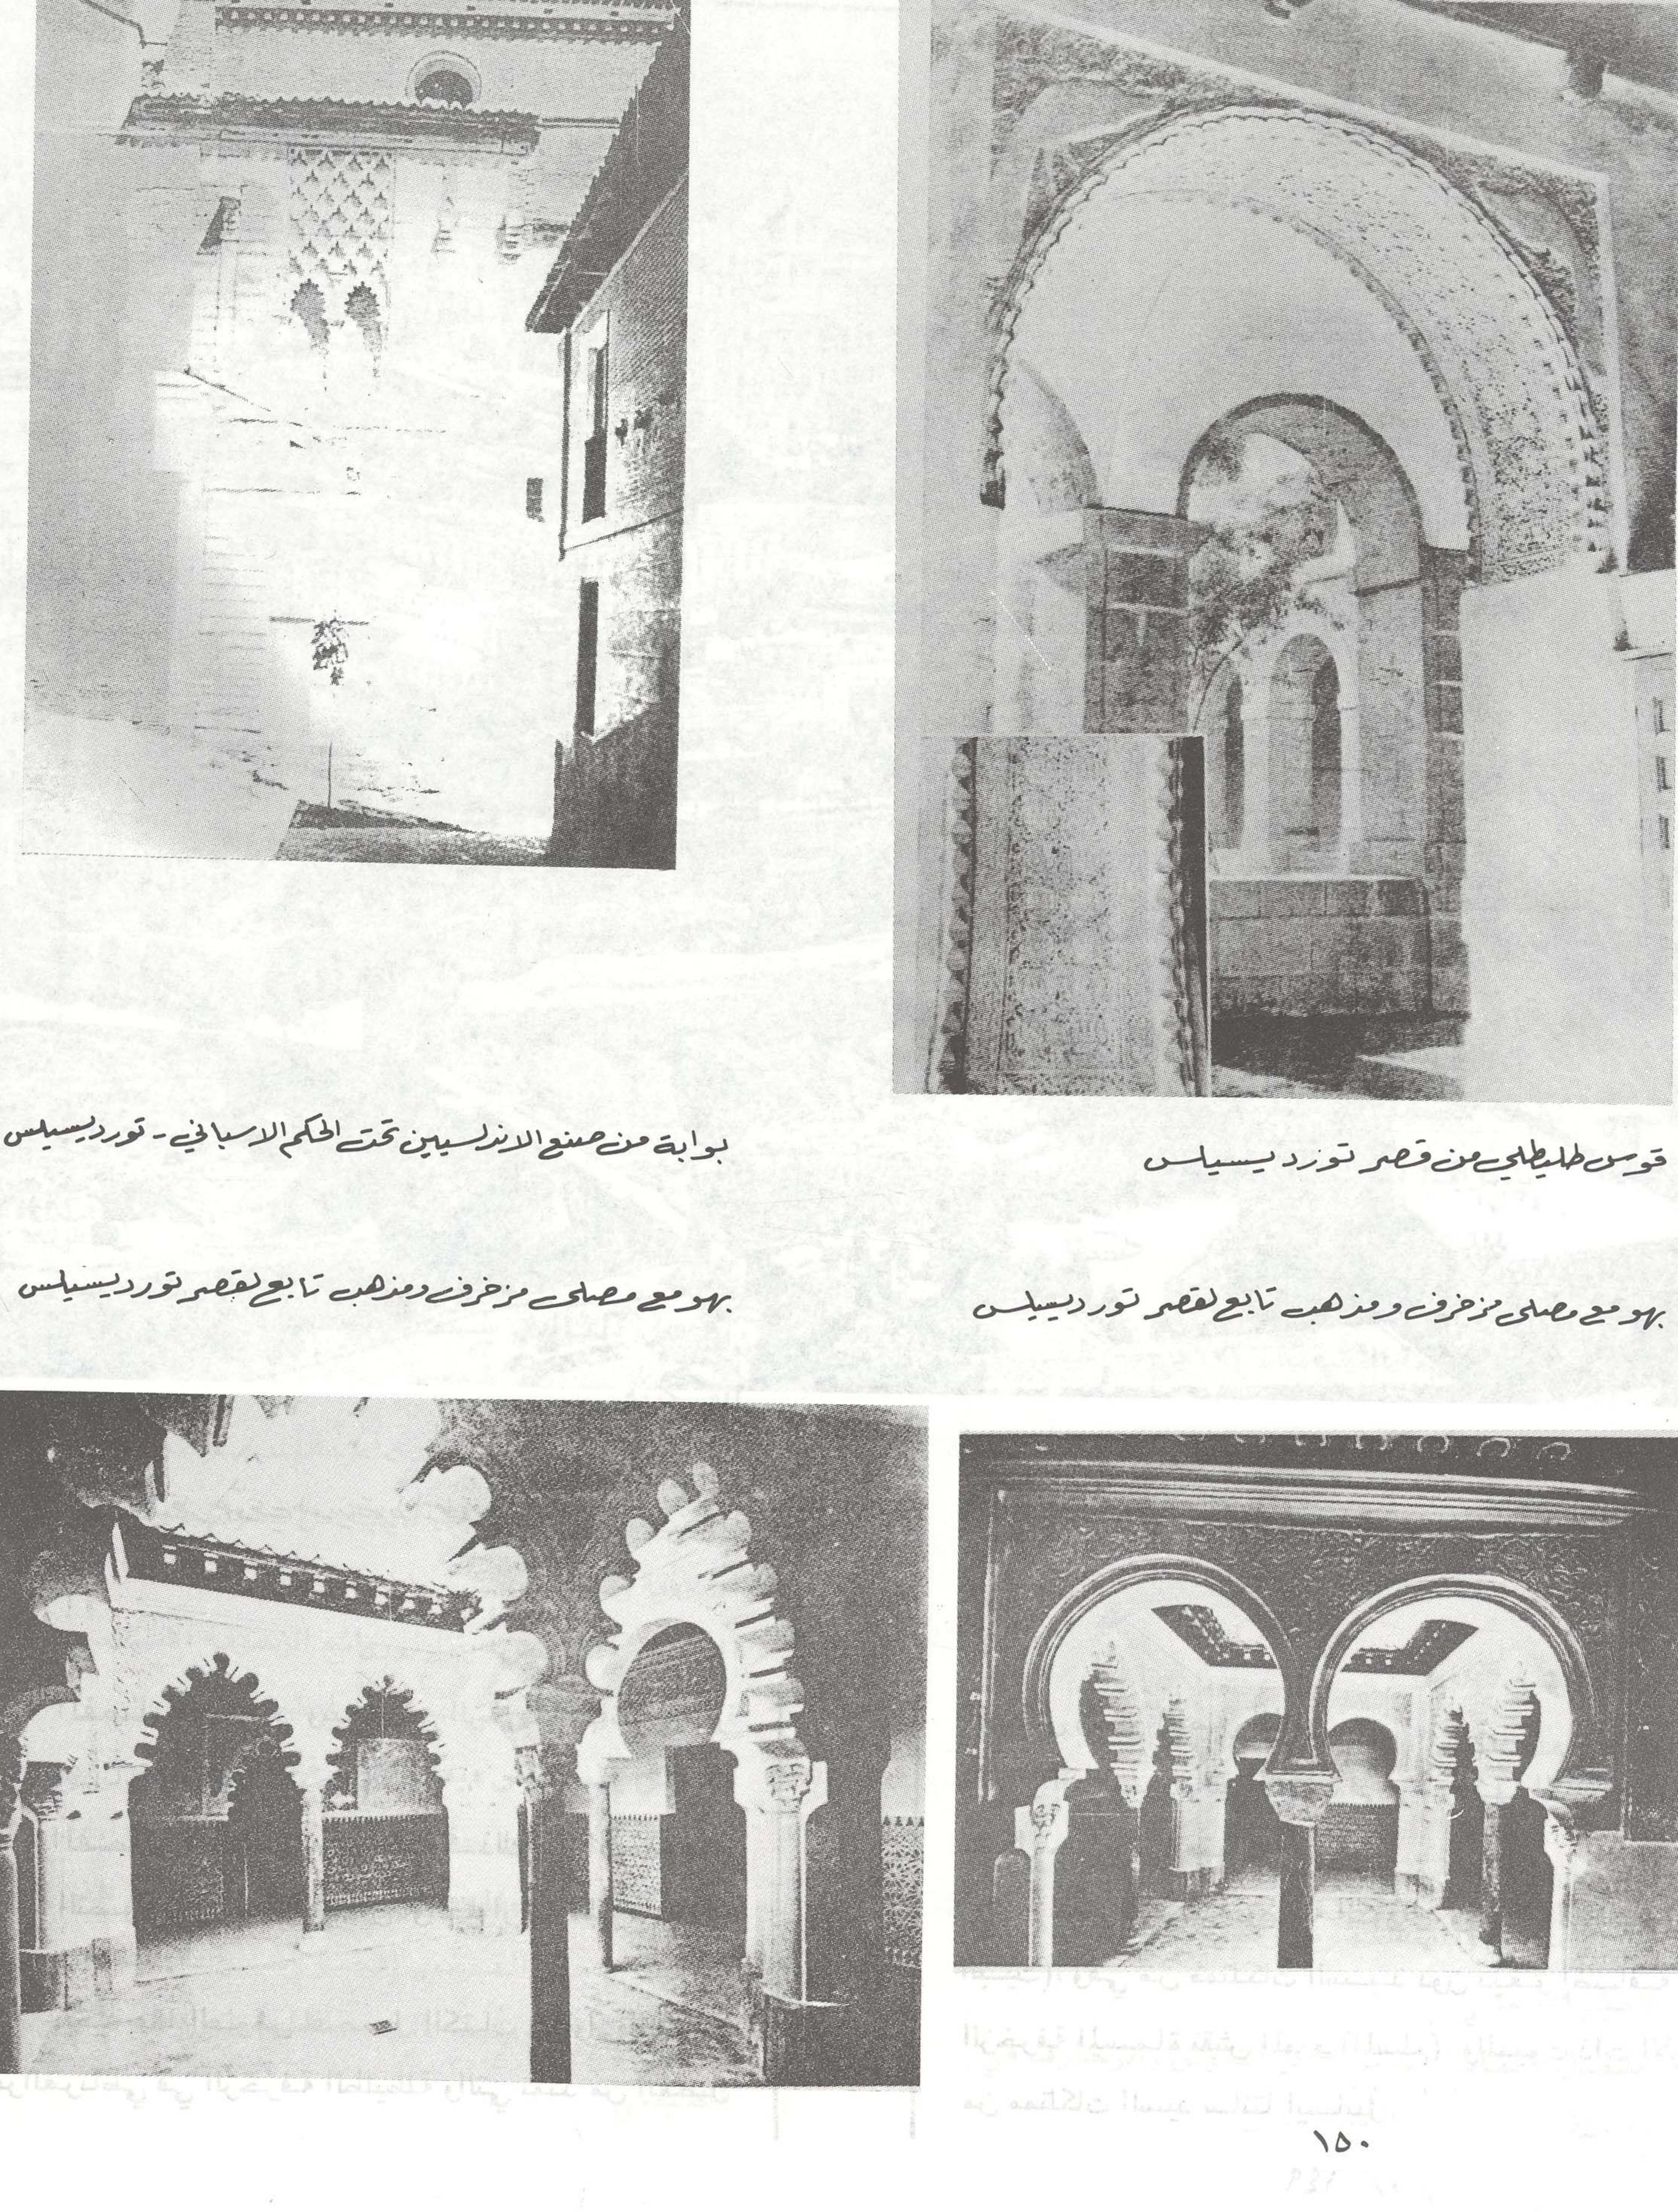 قوس طليطلي من قصر تورديسيلس
بوابة من صنع الاندلسيين تحت الحكم الاسباني - تورديسيلس
بهو مع مصلى مزخرف ومذهب تابع لقصر تورديسيلس
بهو مع مصلى مزخرف ومذهب تابع لقصر تورديسيلس
١٥٠